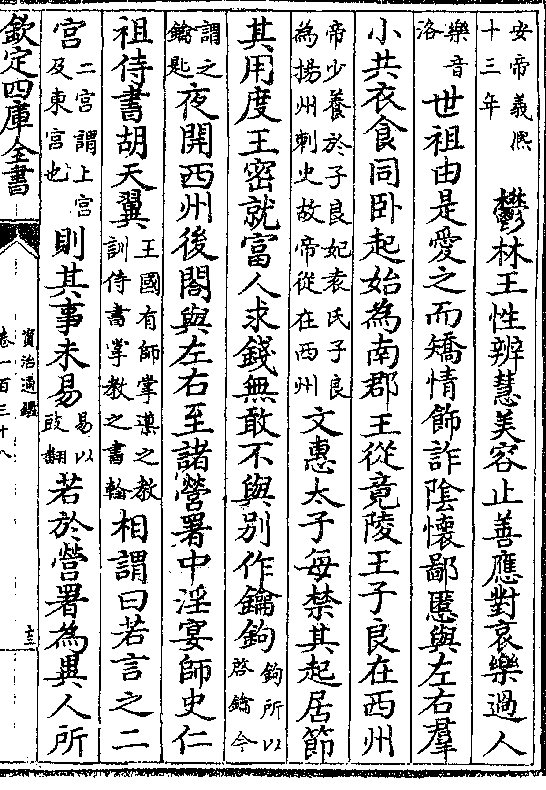 安帝義熙十三年 鬱林王性辨慧美容止善應對哀樂過人
樂音洛 世祖由是愛之而矯情飾詐陰懷鄙慝與左右羣
小共衣食同卧起始為南郡王從竟陵王子良在西州
帝少養於子良妃袁氏子良為揚州刺史故帝從在西州 文惠太子每禁其起居節
其用度王密就富人求錢無敢不與别作鑰鉤 鉤所以啓鑰今
謂之鑰匙 夜開西州後閤與左右至諸營署中淫宴師史仁
祖侍書胡天翼 王國有師掌導之教訓侍書掌教之書翰 相謂曰若言之二
宮 二宮謂上宮及東宮也 則其事未易 易以豉翻 若於營署為異人所
欽定四庫全書
資治通鑑
卷一百三十八
十三